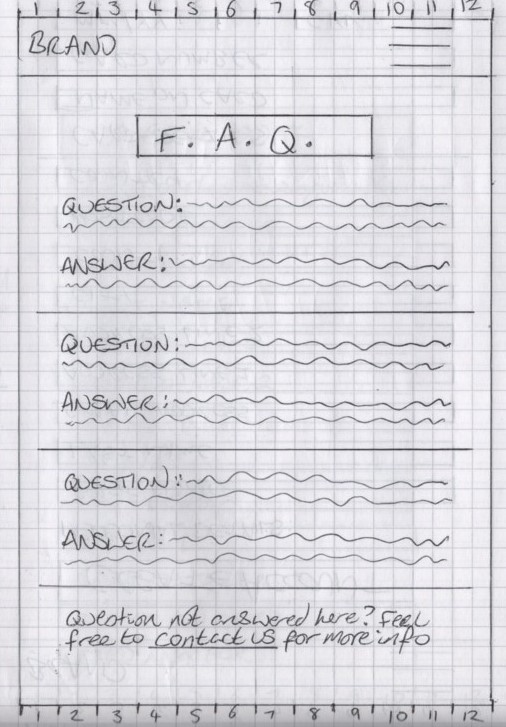 1 2 3 4 5 6 7 8 9 10 11 12
BRAND
F. A. Q.
QUESTION:
ANSWER:
QUESTION:
ANSWER:
QUESTION:
ANSWER:
Question not answered here? Feel
free to contact us for more info
1 2 3 4 5 6 7 8 9 10 11 12